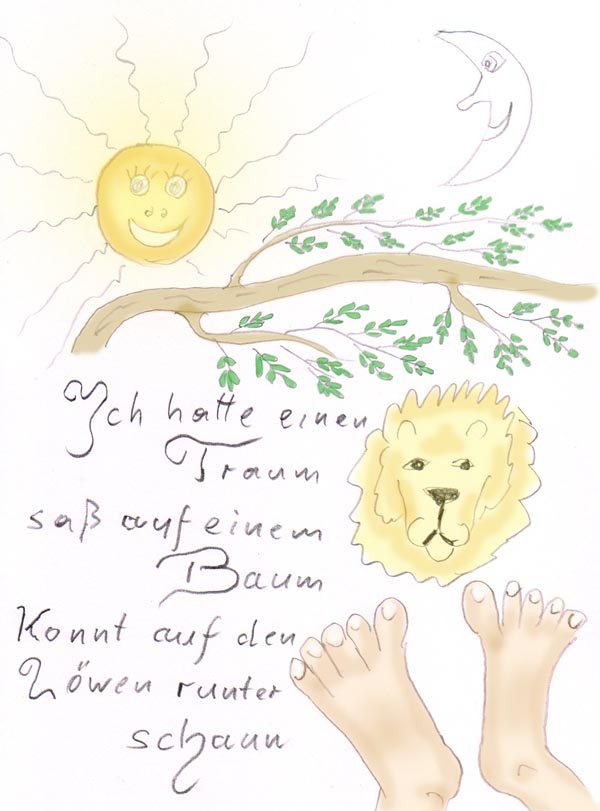 Ich hatte einen
Traum
saß auf einem
Baum
Konnt auf den
Löwen runter
schaun